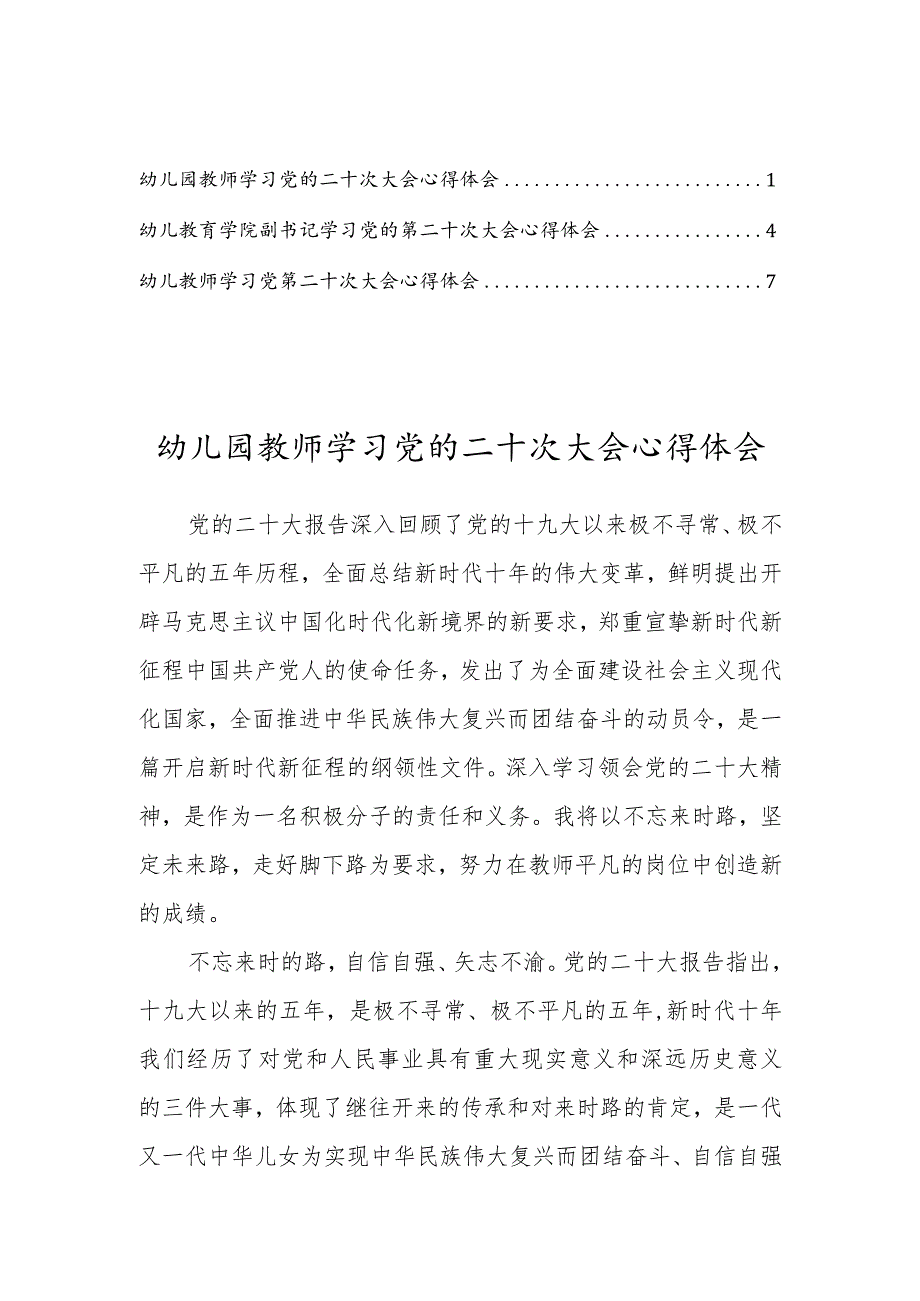 幼儿园教师学习党的二十次大会心得体会..........................1
幼儿教育学院副书记学习党的第二十次大会心得体会................4
幼儿教师学习党第二十次大会心得体会............................7
幼儿园教师学习党的二十次大会心得体会
党的二十大报告深入回顾了党的十九大以来极不寻常、极不
平凡的五年历程，全面总结新时代十年的伟大变革，鲜明提出开
辟马克思主议中国化时代化新境界的新要求，郑重宣挚新时代新
征程中国共产党人的使命任务，发出了为全面建设社会主义现代
化国家，全面推进中华民族伟大复兴而团结奋斗的动员令，是一
篇开启新时代新征程的纲领性文件。深入学习领会党的二十大精
神，是作为一名积极分子的责任和义务。我将以不忘来时路，坚
定未来路，走好脚下路为要求，努力在教师平凡的岗位中创造新
的成绩。
不忘来时的路，自信自强、矢志不渝。党的二十大报告指出，
十九大以来的五年，是极不寻常、极不平凡的五年,新时代十年
我们经历了对党和人民事业具有重大现实意义和深远历史意义
的三件大事，体现了继往开来的传承和对来时路的肯定，是一代
又一代中华儿女为实现中华民族伟大复兴而团结奋斗、自信自强